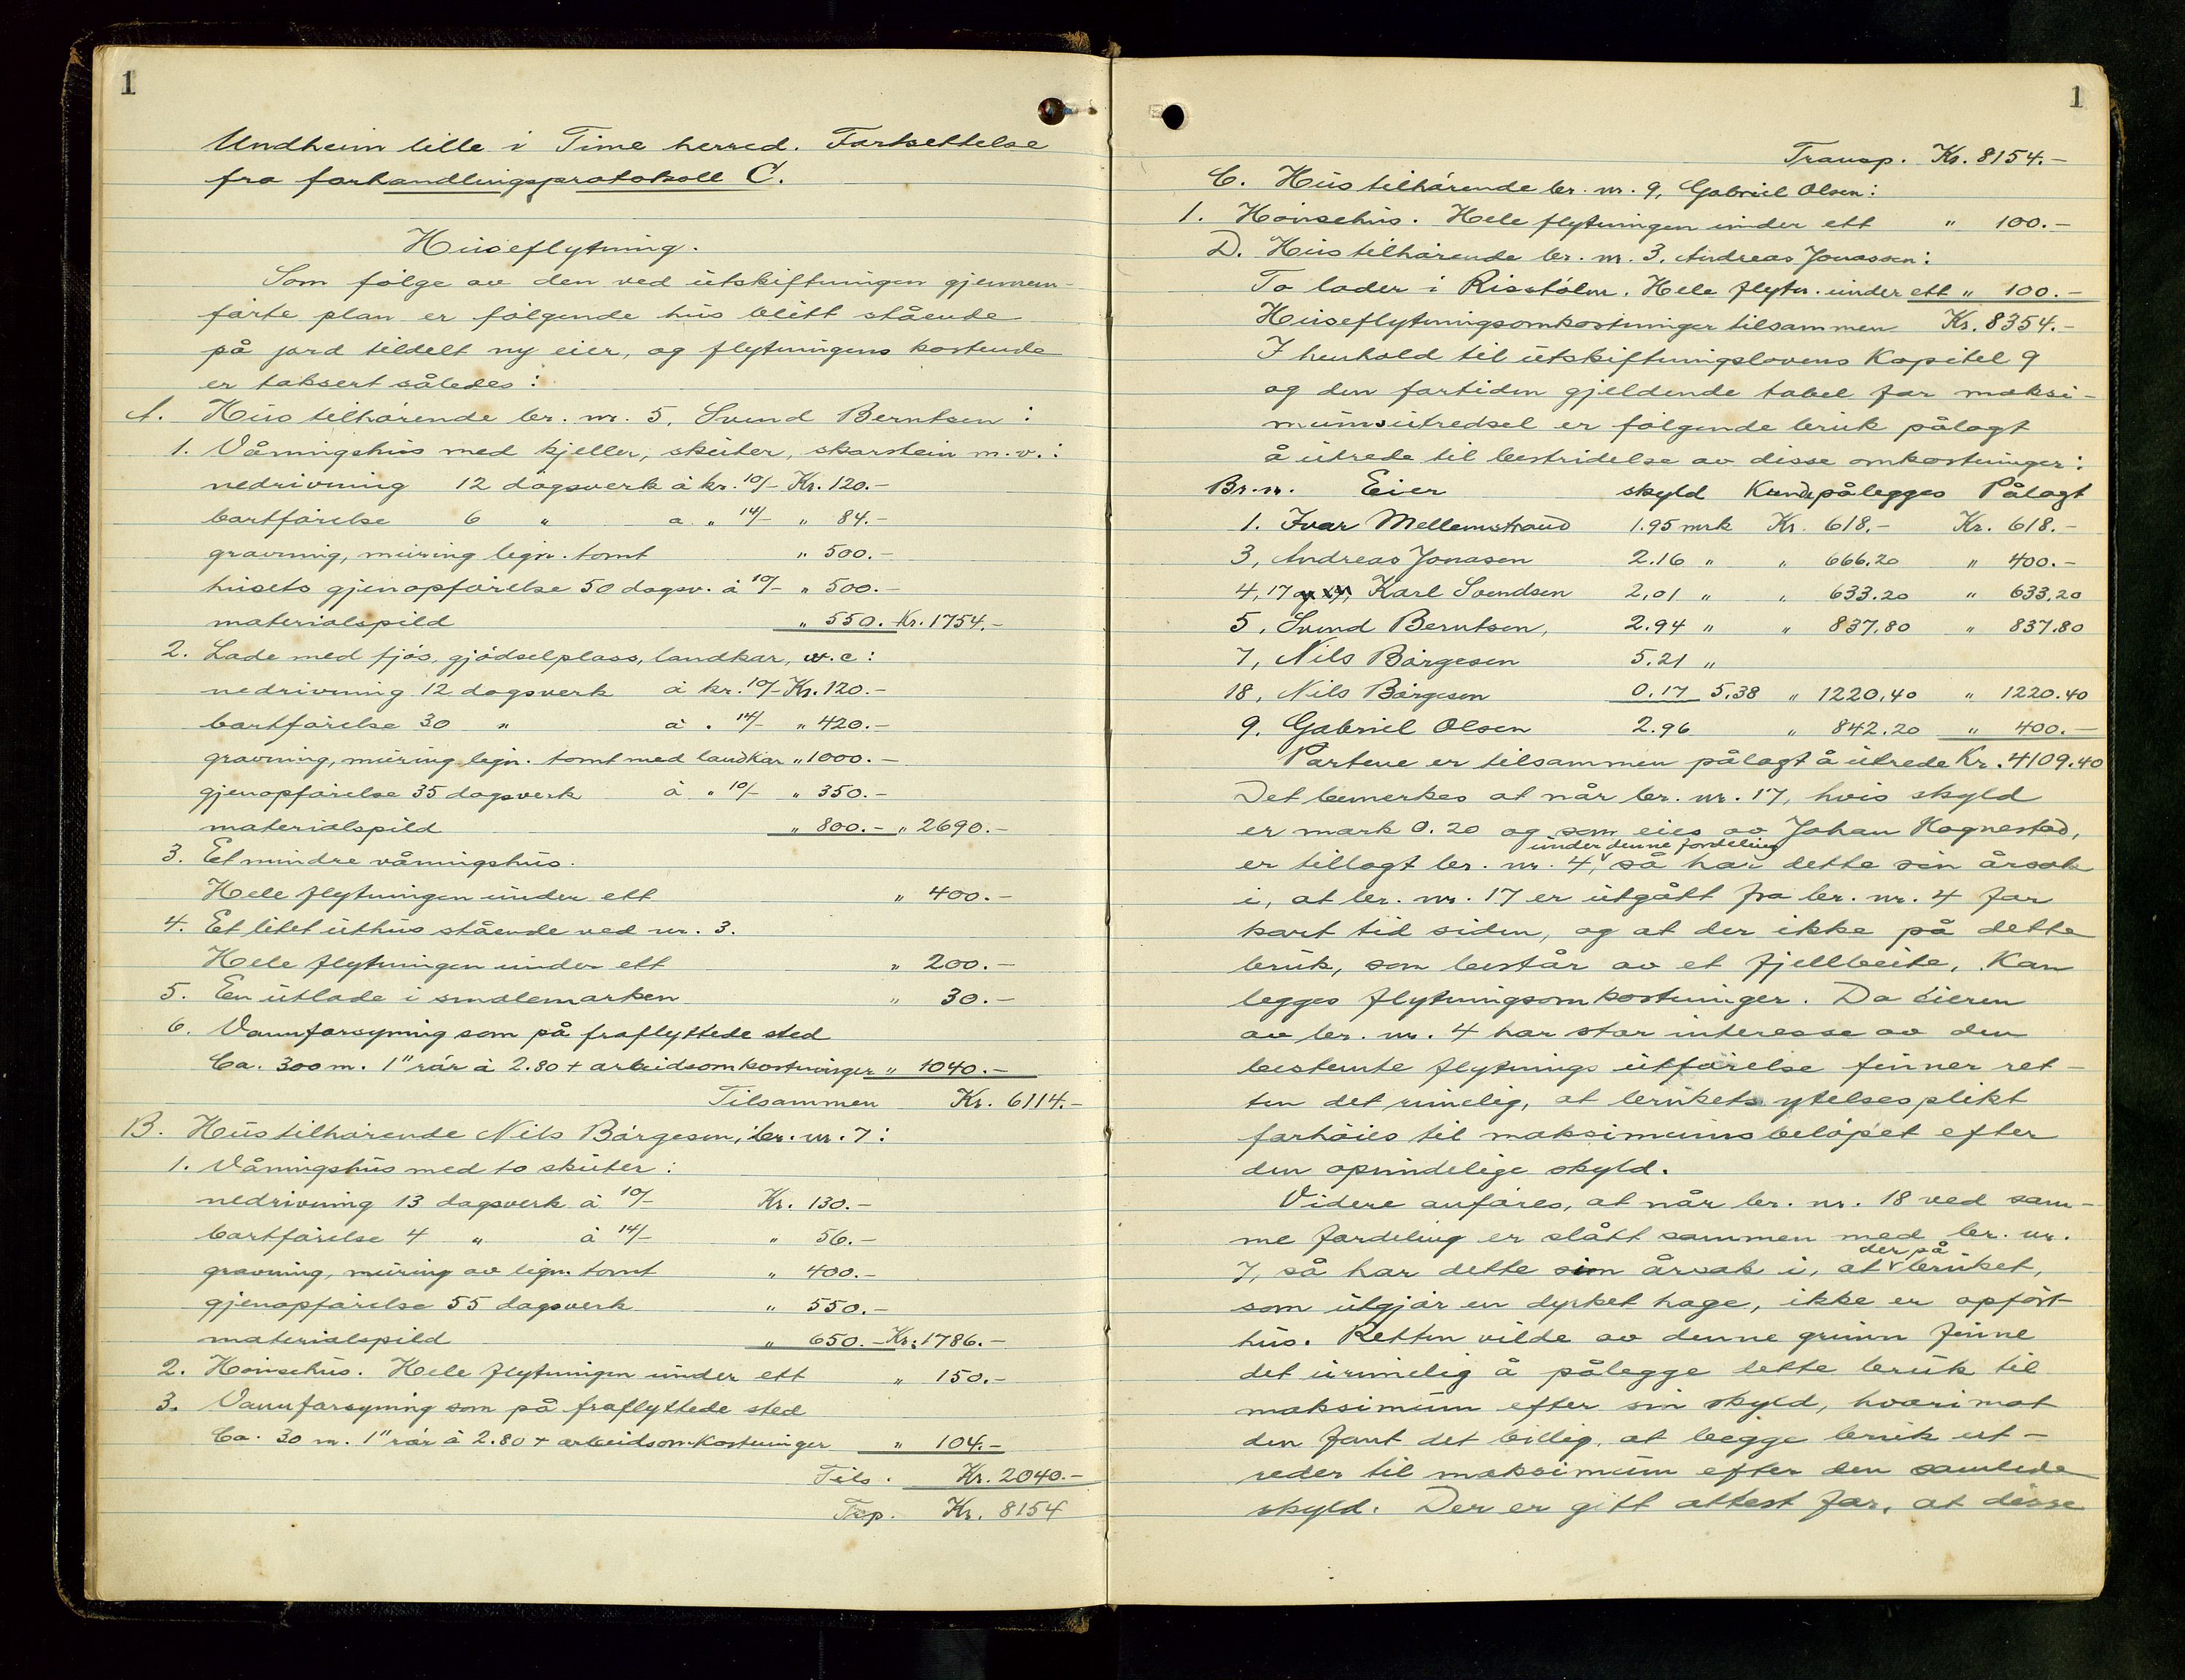 1
Undheim lille i Time herred. Fortsettelse
fra forhandlingsprotokoll C.
Huseflytning.
Som følge av den ved utskiftningen gjennem-
førte plan er følgende hus blitt stående
på jord tildelt ny eier, og flytningens kostende
er taksert således:
A. Hus tilhørende br. nr. 5, Svend Berntsen:
1. Våningshus med kjeller, skuter, skorstein m.v.:
nedrivning 12 dagsverk à kr. 10/- Kr. 120.-
bortførelse 6 " a " 14/- " 84.-
gravning, muring logn. tomt " 500.-
husets gjenopførelse 50 dagsv. à 10/- " 500.-
materialspild " 550. Kr. 1754.-
2. Lade med fjøs, gjødselplass, landkar, w.c:
nedrivning 12 dagsverk à kr. 10/- Kr. 120.-
bortførelse 30 " à " 14/- " 420.-
gravning, muring legn. tomt med landkar " 1000.-
gjenopførelse 35 dagsverk à " 10/- " 350.-
materialspild " 800.- " 2690.-
3. Et mindre våningshus.
Hele flytningen under ett " 400.-
4. Et litet uthus stående ved nr. 3.
Hele flytningen under ett " 200.-
5. En utlade i smalemarken " 30.-
6. Vannforsyning som på fraflyttede sted
Ca. 300 m. 1" rør à 2.80 + arbeidsomkostninger " 1040.-
Tilsammen Kr. 6114.-
B. Hus tilhørende Nils Børgesen, br. nr. 7:
1. Våningshus med to skuter:
nedrivning 13 dagsverk à 10/- Kr. 130.-
bortførelse 4 " à 14/- " 56.-
gravning, muring av legn. tomt " 400.-
gjenopførelse 55 dagsverk " 550.-
materialspild " 650.- Kr. 1786.-
2. Hønsehus. Hele flytningen under ett " 150.-
3. Vannforsyning som på fraflyttede sted
Ca. 30 m. 1" rør à 2.80 + arbeidsomkostninger " 104.-
Tils. Kr. 2040.-
Trsp. Kr. 8154
1
Transp. Kr. 8154.-
C. Hus tilhørende br. nr. 9, Gabriel Olsen:
1. Hønsehus. Hele flytningen under ett " 100.-
D. Hus tilhørende br. nr. 3, Andreas Jonassen:
To lader i Risstølm. Hele flytn. under ett " 100.-
Huseflytningsomkostninger tilsammen Kr. 8354.-
I henhold til utskiftningslovens Kapitel 9
og den fortiden gjeldende tabel for maksi-
mumsutredsel er følgende bruk pålagt
å utrede til bestridelse av disse omkostninger:
Br. nr. Eier skyld Kunde pålegges Pålagt
1. Ivar Mellemstrand 1.95 mrk Kr. 618.- Kr. 618.-
3, Andreas Jonasen 2.16 " " 666.20 " 400.-
4, 17 Karl Svendsen 2,01 " " 633.20 " 633,20
5, Svend Berntsen, 2.94 " " 837.80 " 837.80
7, Nils Børgesen 5.21 "
18, Nils Børgesen 0.17 5.38 " 1220.40 " 1220.40
9. Gabriel Olsen 2.96 " 842.20 " 400.-
Partene er tilsammen pålagt å utrede Kr. 4109.40
Det bemerkes at når br. nr. 17, hvis skyld
er mark 0.20 og som eies av Johan Hognestad,
under denne fordeling
er tillagt br. nr. 4, så har dette sin årsak
i, at br. nr. 17 er utgått fra br. nr. 4 for
kort tid siden, og at der ikke på dette
bruk, som består av et fjellbeite, kan
legges flytningsomkostninger. Da eieren
av br. nr. 4 har stor interesse av den
bestemte flytnings utførelse finner ret-
ten det rimelig, at brukets ytelsesplikt
forhøies til maksimumsbeløpet efter
den oprindelige skyld.
Videre anføres, at når br. nr. 18 ved sam-
me fordeling er slått sammen med br. nr.
der på
7, så har dette sin årsak i, at bruket,
som utgjør en dyrket hage, ikke er opført
hus. Retten vilde av denne grunn finne
det urimelig å pålegge dette bruk til
maksimum efter sin skyld, hvorimot
den fant det billig, at begge bruk ut-
reder til maksimum efter den samlede
skyld. Der er gitt attest for, at disse